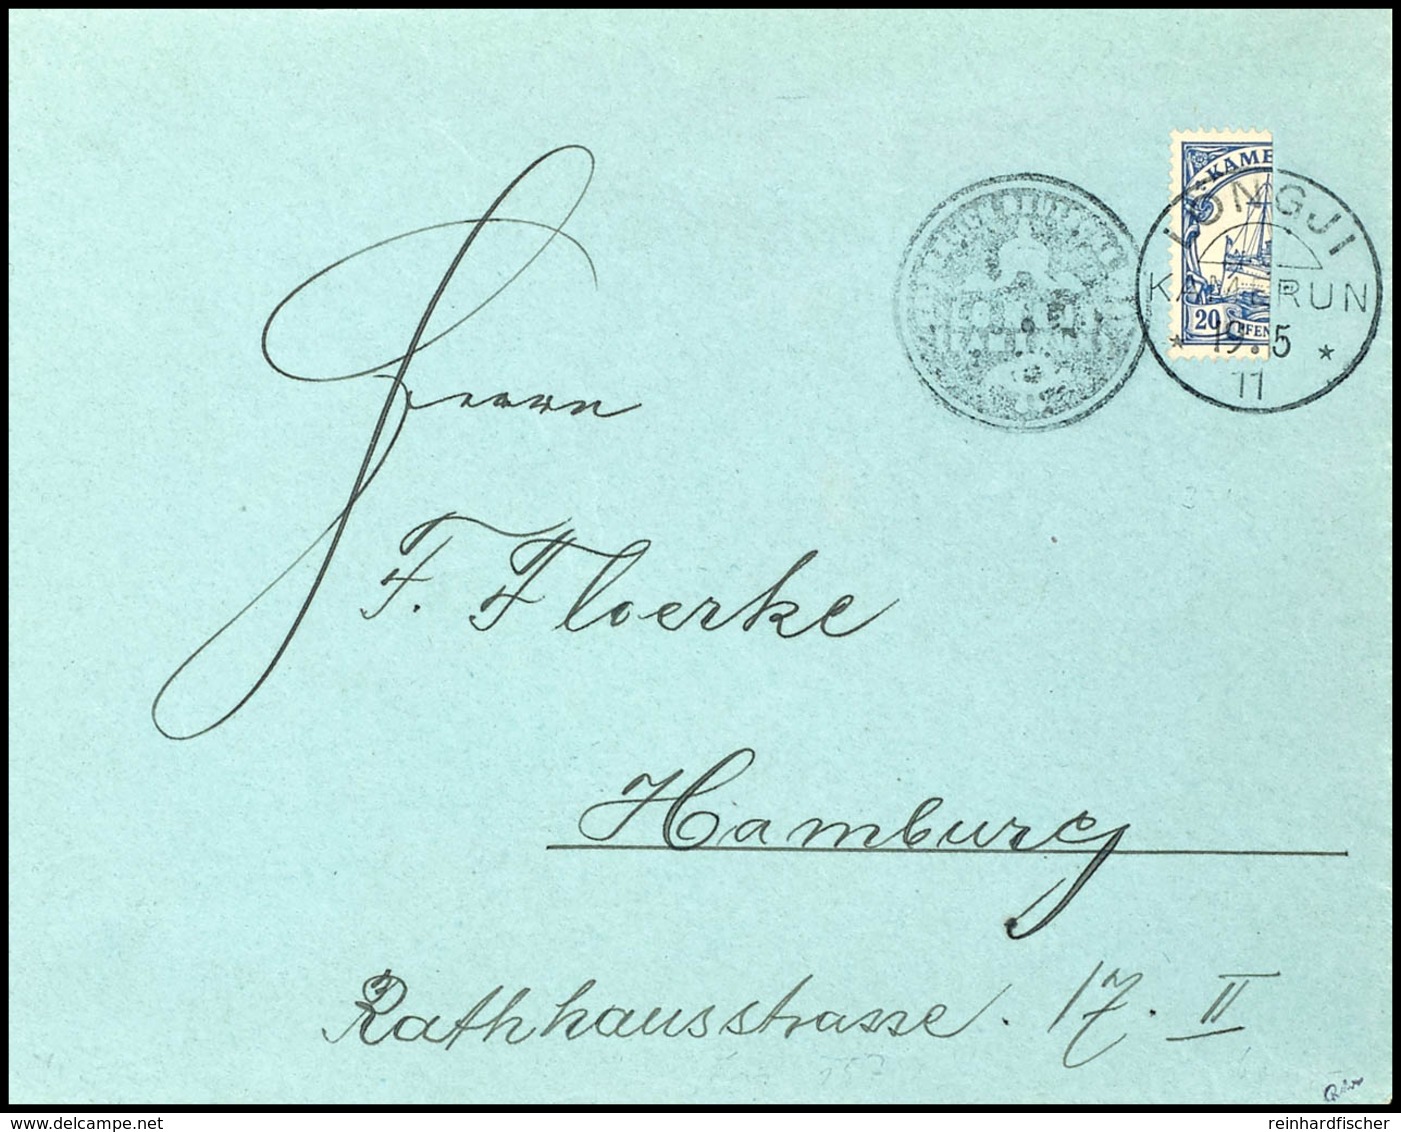 KAME
20 PFEN
LONGJI
KAMERUN
* 19.5 *
11
Herrn
F. Floerke
Hamburg
Rathhausstrasse. 17. II
reinhardfischer